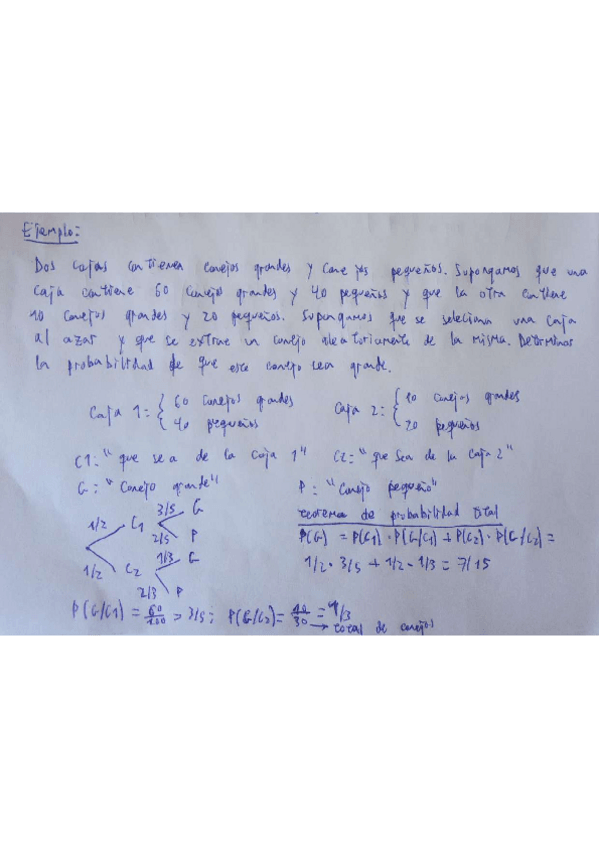 Ejemplo:
Dos cajas contienen conejos grandes y conejos pequeños. Supongamos que una
caja contiene 60 conejos grandes y 40 pequeños y que la otra contiene
10 conejos grandes y 20 pequeños. Supongamos que se selecciona una caja
al azar y que se extrae un conejo aleatoriamente de la misma. Determinar
la probabilidad de que este conejo sea grande.
Caja 1 = { 60 conejos grandes
40 pequeños
Caja 2 = { 10 conejos grandes
20 pequeños
C1: "que sea de la caja 1" C2: "que sea de la caja 2"
G: "Conejo grande" P: "Conejo pequeño"
1/2 C1 3/5 G
2/5 P
1/2 C2 1/3 G
2/3 P
teorema de probabilidad total
P(G) = P(C1) · P(G/C1) + P(C2) · P(G/C2) =
1/2 · 3/5 + 1/2 · 1/3 = 7/15
P(G/C1) = 60/100 = 3/5 ; P(G/C2) = 10/30 = 1/3
→ total de conejos